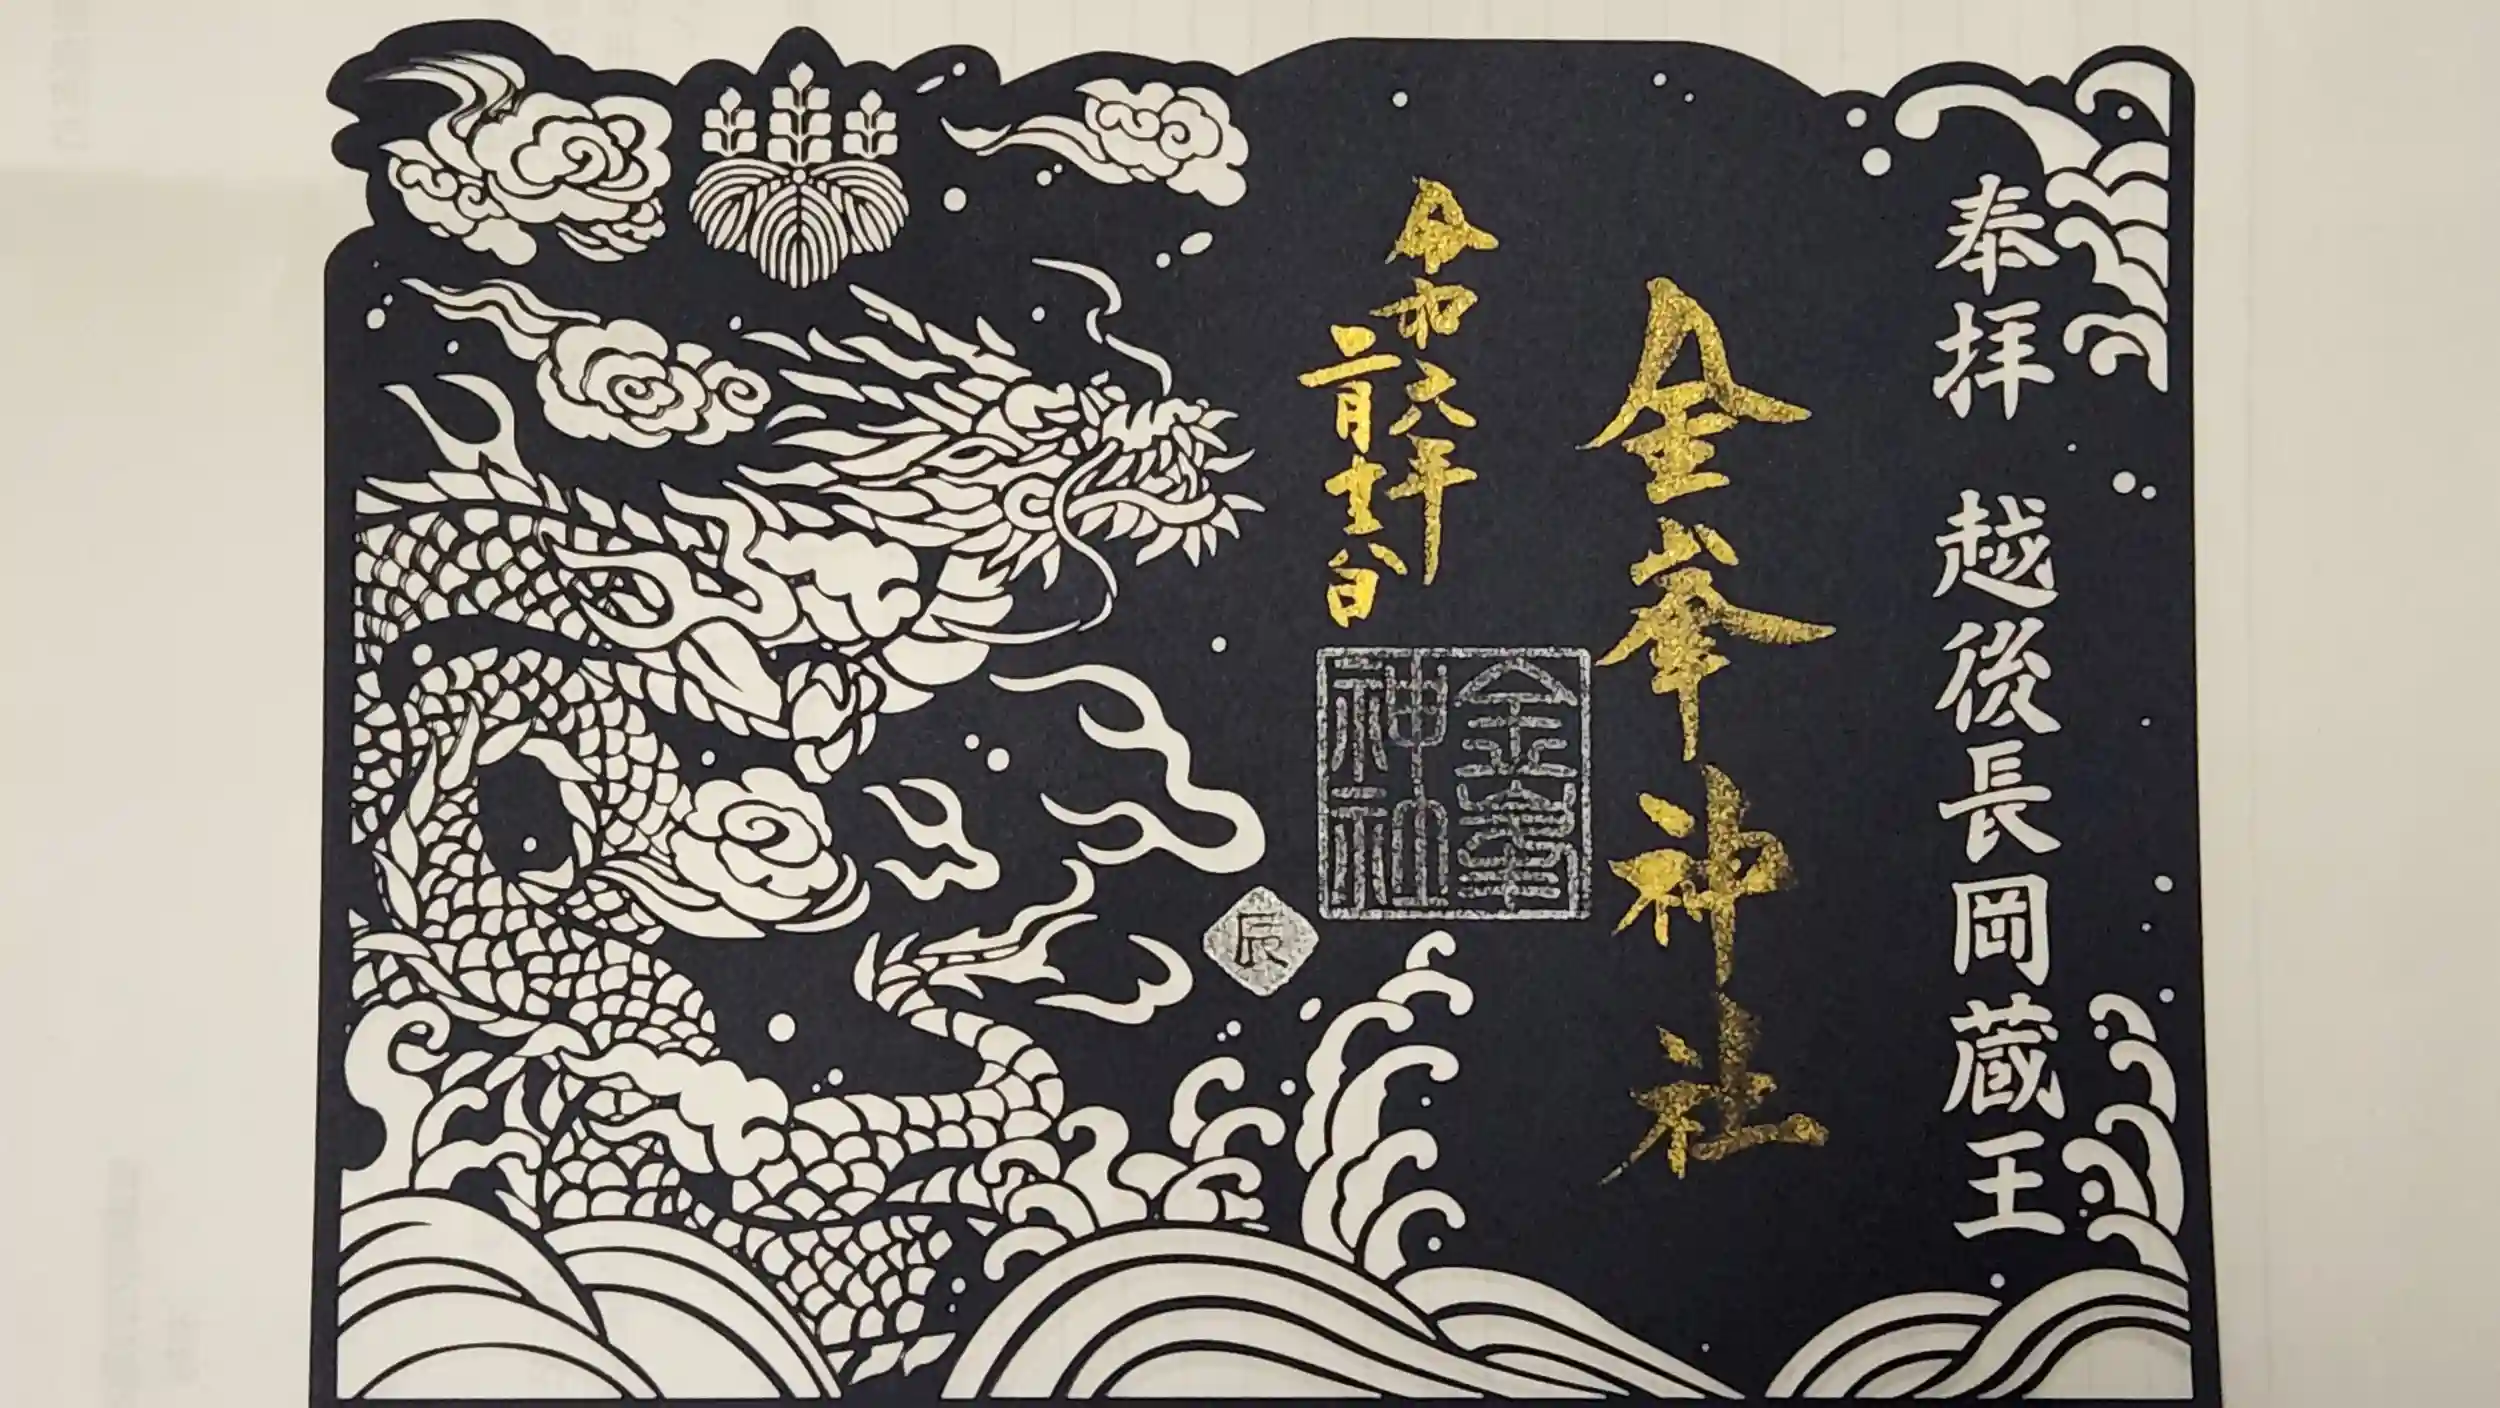 奉拝 越後長岡蔵王
金峯神社
令和六年
二月
金峯
神社
辰